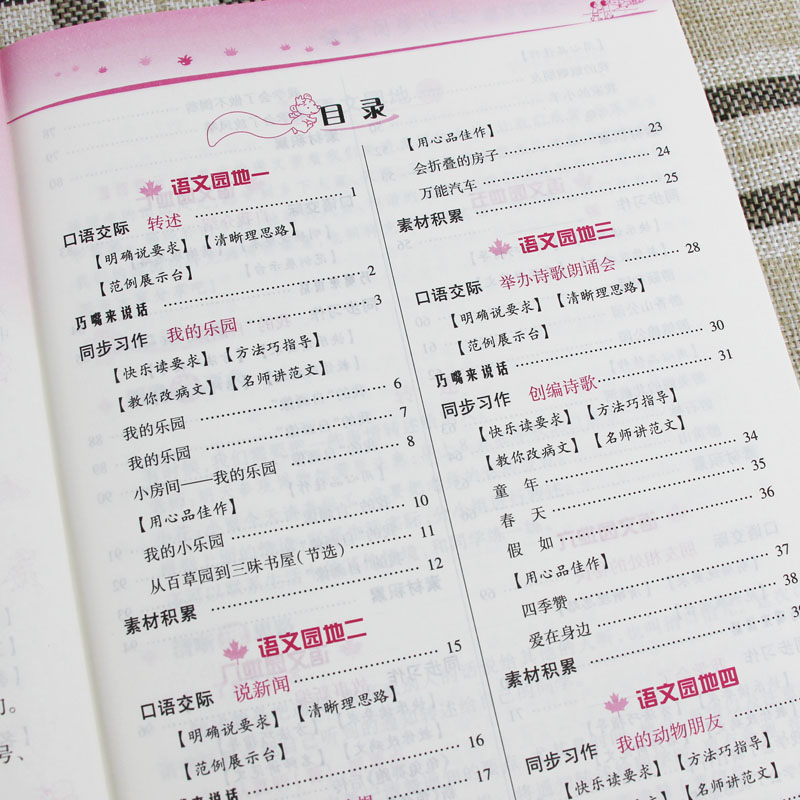 目录
语文园地一
口语交际 转述 1
【明确说要求】【清晰理思路】
【范例展示台】
巧嘴来说话 2
同步习作 我的乐园 3
【快乐读要求】【方法巧指导】
【教你改病文】【名师讲范文】
我的乐园 6
我的乐园 7
小房间——我的乐园 8
【用心品佳作】
我的小乐园 10
从百草园到三味书屋(节选) 11
素材积累 12
语文园地二
口语交际 说新闻 15
【明确说要求】【清晰理思路】
【范例展示台】
巧嘴来说话 16
17
【用心品佳作】
会折叠的房子 23
万能汽车 24
素材积累 25
语文园地三
口语交际 举办诗歌朗诵会 28
【明确说要求】【清晰理思路】
【范例展示台】
巧嘴来说话 30
同步习作 创编诗歌 31
【快乐读要求】【方法巧指导】
【教你改病文】【名师讲范文】
童年 34
春天 35
假如 36
【用心品佳作】
四季赞 37
爱在身边 38
素材积累 39
语文园地四
同步习作 我的动物朋友
【快乐读要求】【方法巧指导】
【教你改病文】【名师讲范文】
号、